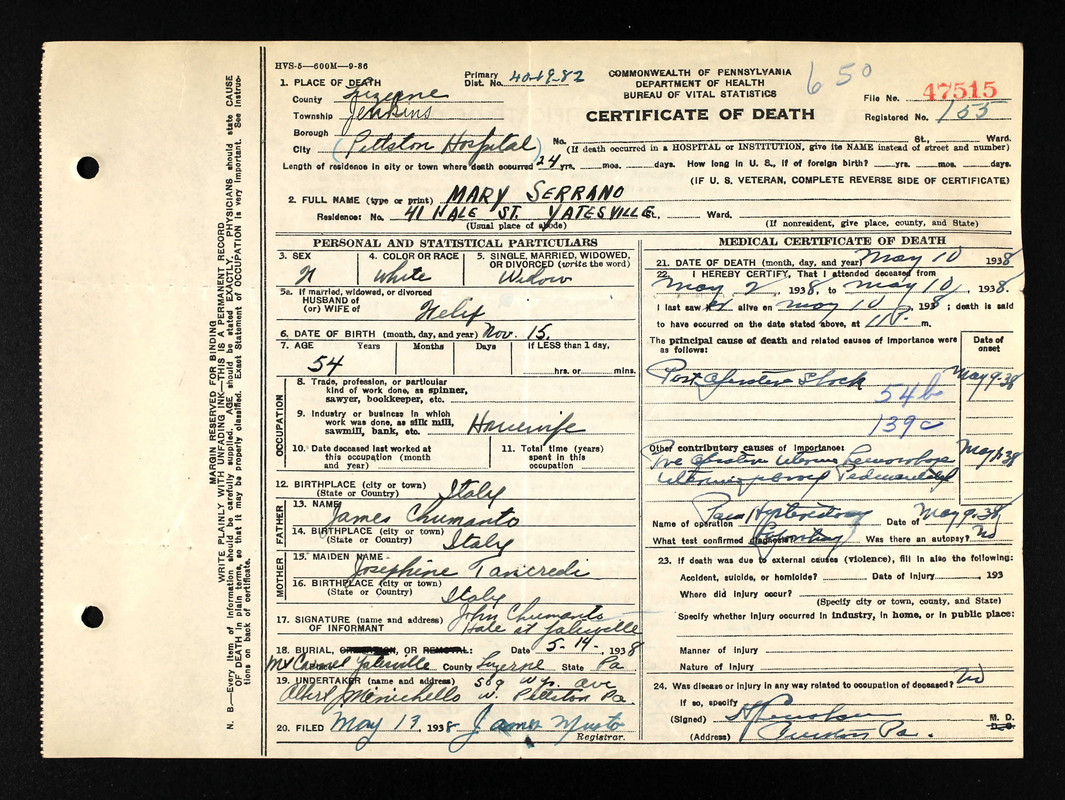 HVS-5—600M—9-36
1. PLACE OF DEATH
County Luzerne
Township Jenkins
Borough
City (Pittston Hospital)
Primary Dist. No. 40-19-82
COMMONWEALTH OF PENNSYLVANIA
DEPARTMENT OF HEALTH
BUREAU OF VITAL STATISTICS
CERTIFICATE OF DEATH
650
File No. 47515
Registered No. 155
No. St. Ward.
(If death occurred in a HOSPITAL or INSTITUTION, give its NAME instead of street and number)
Length of residence in city or town where death occurred 24 yrs. mos. days. How long in U. S., if of foreign birth? yrs. mos. days.
(IF U. S. VETERAN, COMPLETE REVERSE SIDE OF CERTIFICATE)
2. FULL NAME (type or print) MARY SERRANO
Residence: No. 41 HALE ST. YATESVILLE St., Ward.
(Usual place of abode) (If nonresident, give place, county, and State)
PERSONAL AND STATISTICAL PARTICULARS
3. SEX
4. COLOR OR RACE White
5. SINGLE, MARRIED, WIDOWED, OR DIVORCED (write the word) Widow
5a. If married, widowed, or divorced
HUSBAND of
(or) WIFE of
6. DATE OF BIRTH (month, day, and year) Nov. 15,
7. AGE Years Months Days If LESS than 1 day,
54 hrs. or mins.
OCCUPATION
8. Trade, profession, or particular
kind of work done, as spinner,
sawyer, bookkeeper, etc.
9. Industry or business in which
work was done, as silk mill,
sawmill, bank, etc. Housewife
10. Date deceased last worked at
this occupation (month
and year)
11. Total time (years)
spent in this
occupation
12. BIRTHPLACE (city or town)
(State or Country) Italy
FATHER
13. NAME James Chumanto
14. BIRTHPLACE (city or town)
(State or Country) Italy
MOTHER
15. MAIDEN NAME Josephine Tancredi
16. BIRTHPLACE (city or town)
(State or Country) Italy
17. SIGNATURE (name and address) John Chumanto
OF INFORMANT Hale st Yatesville
18. BURIAL, CREMATION, OR REMOVAL: Date 5-14-, 1938
Mt Carmel Yatesville County Luzerne State Pa
19. UNDERTAKER (name and address) 569 Wy. Ave
Albert J Minichello W. Pittston Pa.
20. FILED May 13 1938 James Musto
Registrar.
MEDICAL CERTIFICATE OF DEATH
21. DATE OF DEATH (month, day, and year) May 10 1938
22. I HEREBY CERTIFY, That I attended deceased from
May 2, 1938 to May 10, 1938.
I last saw er alive on May 10, 1938; death is said
to have occurred on the date stated above, at 11 P. m.
The principal cause of death and related causes of importance were
as follows:
Date of
onset
Post Operative Shock May 9-38
54b
139c
Other contributory causes of importance:
Name of operation Date of May 9-38
What test confirmed diagnosis? Was there an autopsy? No
23. If death was due to external causes (violence), fill in also the following:
Accident, suicide, or homicide? Date of injury , 193
Where did injury occur?
(Specify city or town, county, and State)
Specify whether injury occurred in industry, in home, or in public place:
Manner of injury
Nature of injury
24. Was disease or injury in any way related to occupation of deceased? No
If so, specify
(Signed) M. D.
D. O.
(Address) Pa.
MARGIN RESERVED FOR BINDING
WRITE PLAINLY WITH UNFADING INK—THIS IS A PERMANENT RECORD
N. B.—Every item of information should be carefully supplied. AGE should be stated EXACTLY. PHYSICIANS should state CAUSE
OF DEATH in plain terms, so that it may be properly classified. Exact Statement of OCCUPATION is very important. See instruc-
tions on back of certificate.